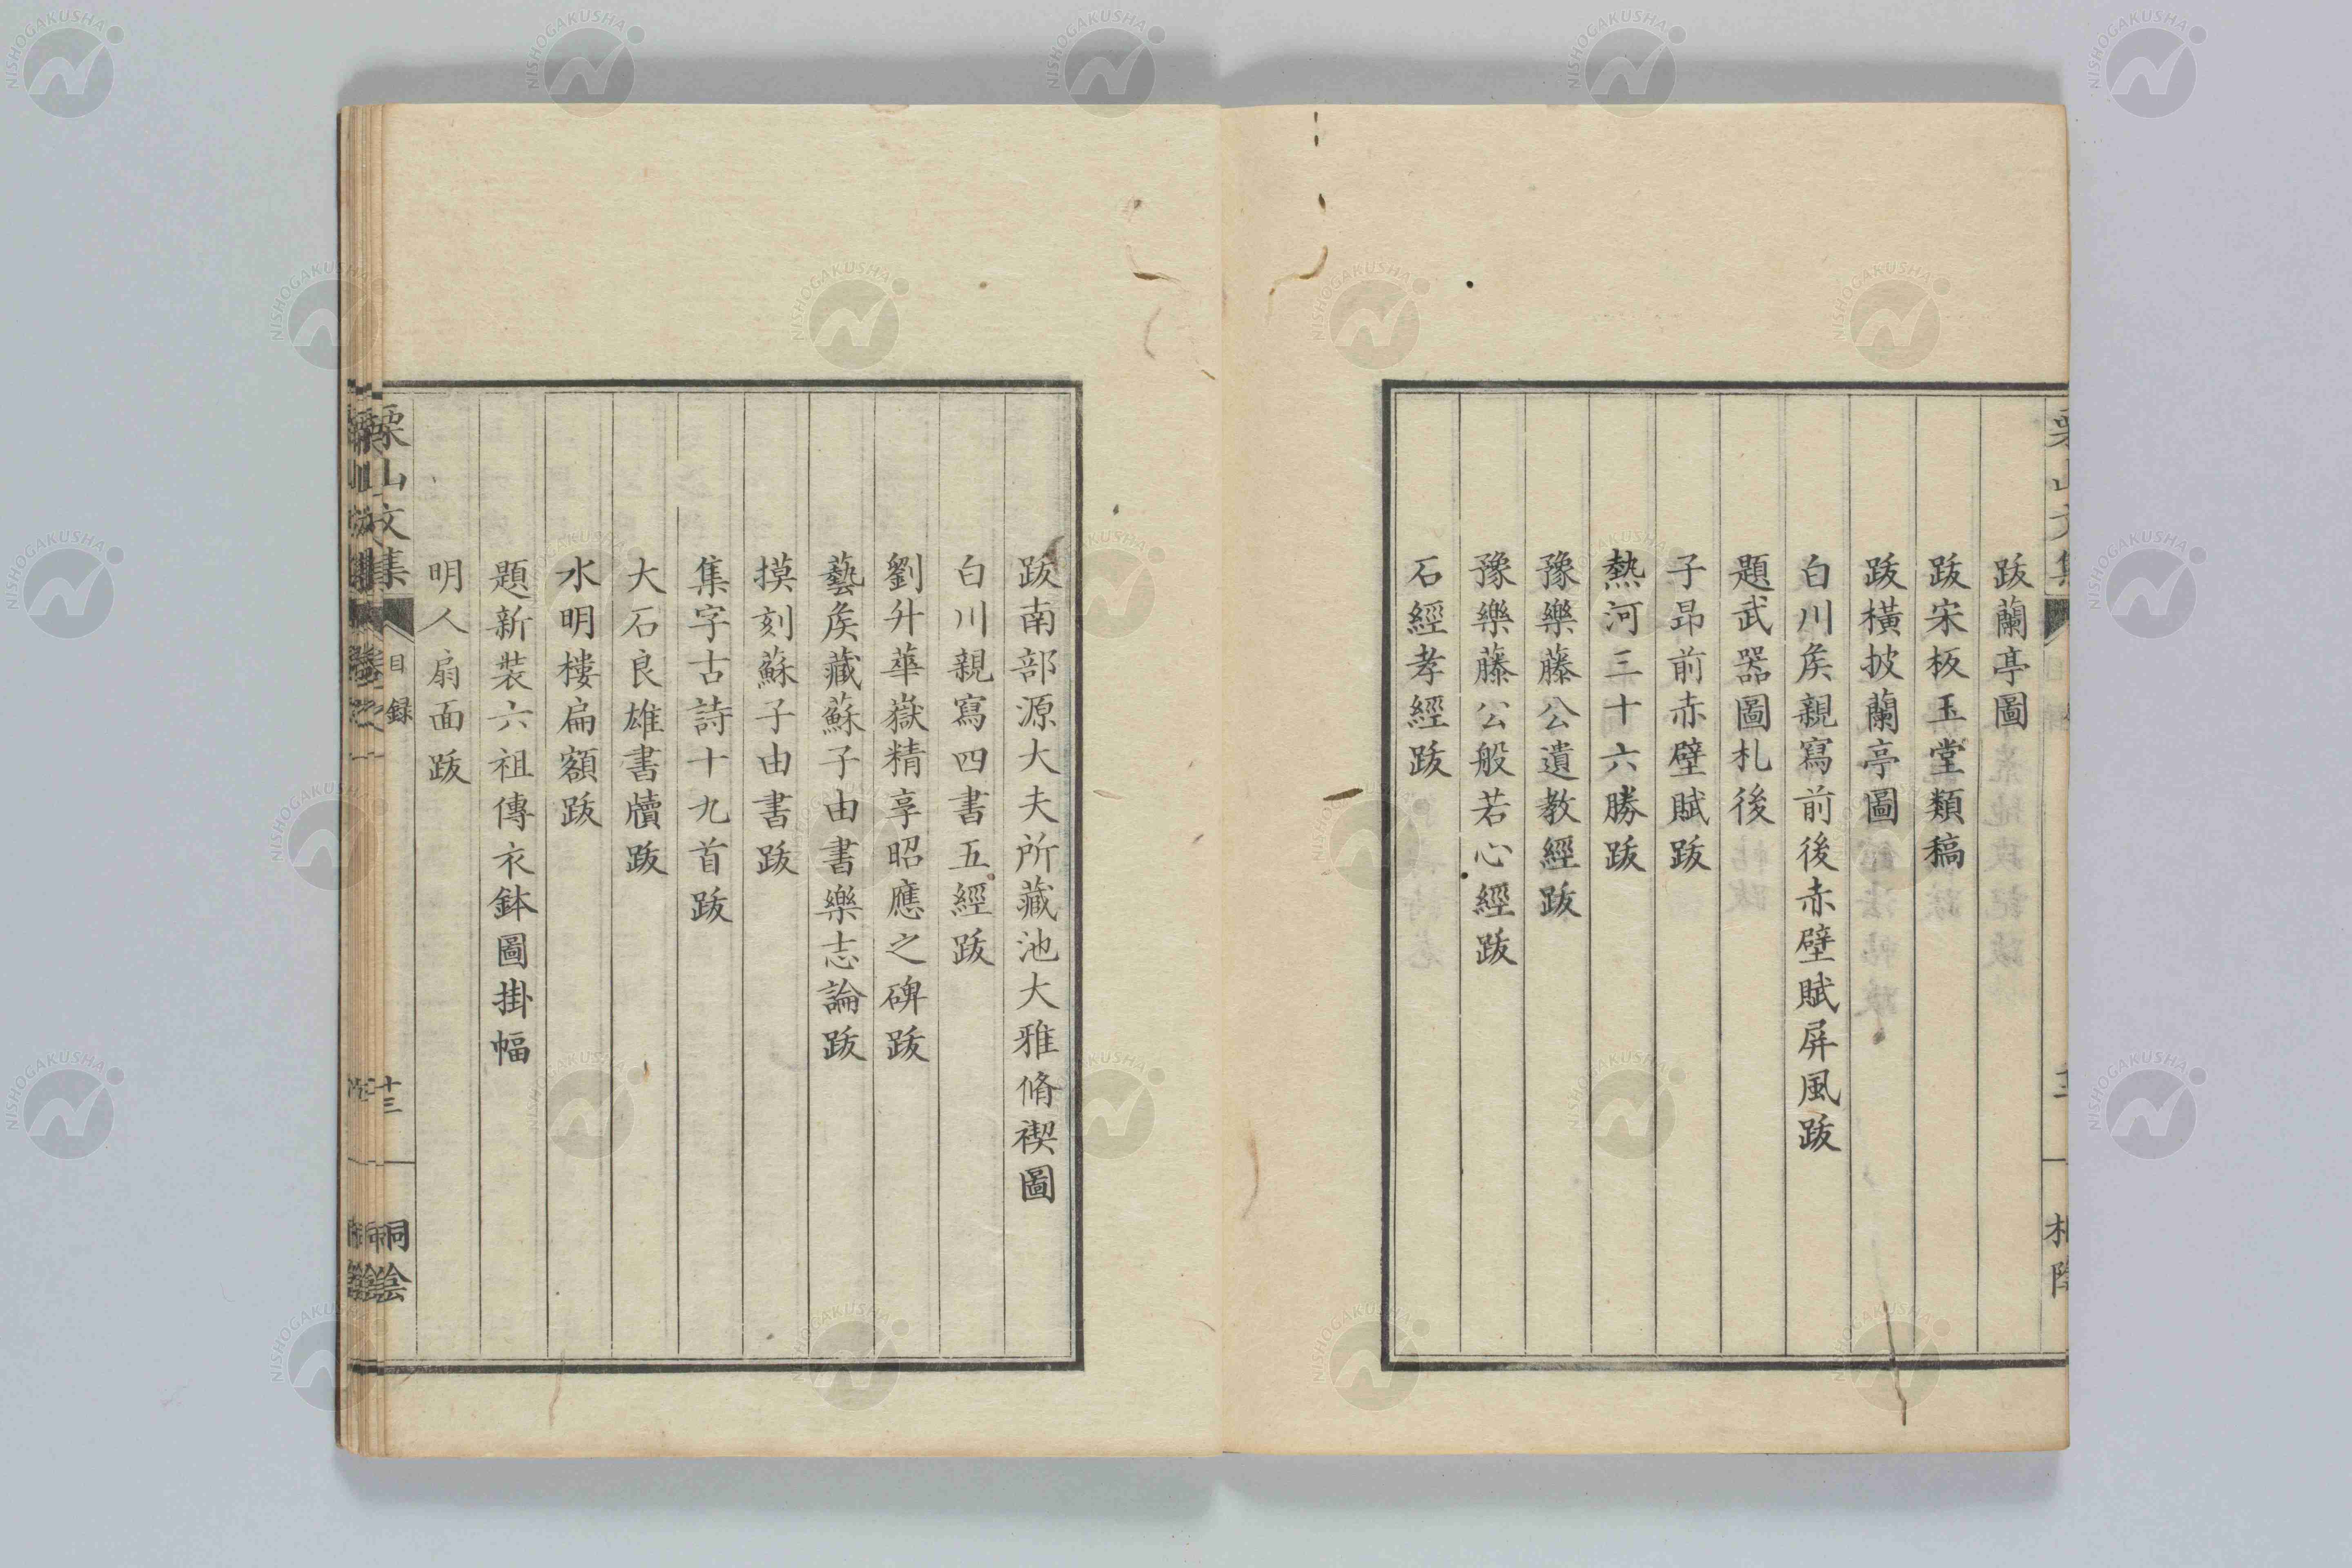 跋蘭亭圖
跋宋板玉堂類稿
跋橫披蘭亭圖
白川矦親寫前後赤壁賦屏風跋
題武器圖札後
子昂前赤壁賦跋
熱河三十六勝跋
豫樂藤公遺教經跋
豫樂藤公般若心經跋
石經孝經跋
跋南部源大夫所藏池大雅脩禊圖
白川親寫四書五經跋
劉升華嶽精享昭應之碑跋
藝矦藏蘇子由書樂志論跋
摸刻蘇子由書跋
集字古詩十九首跋
大石良雄書牘跋
水明樓扁額跋
題新裝六祖傳衣鉢圖掛幅
明人扇面跋
栗山文集 目録 十三
NISHOGAKUSHA